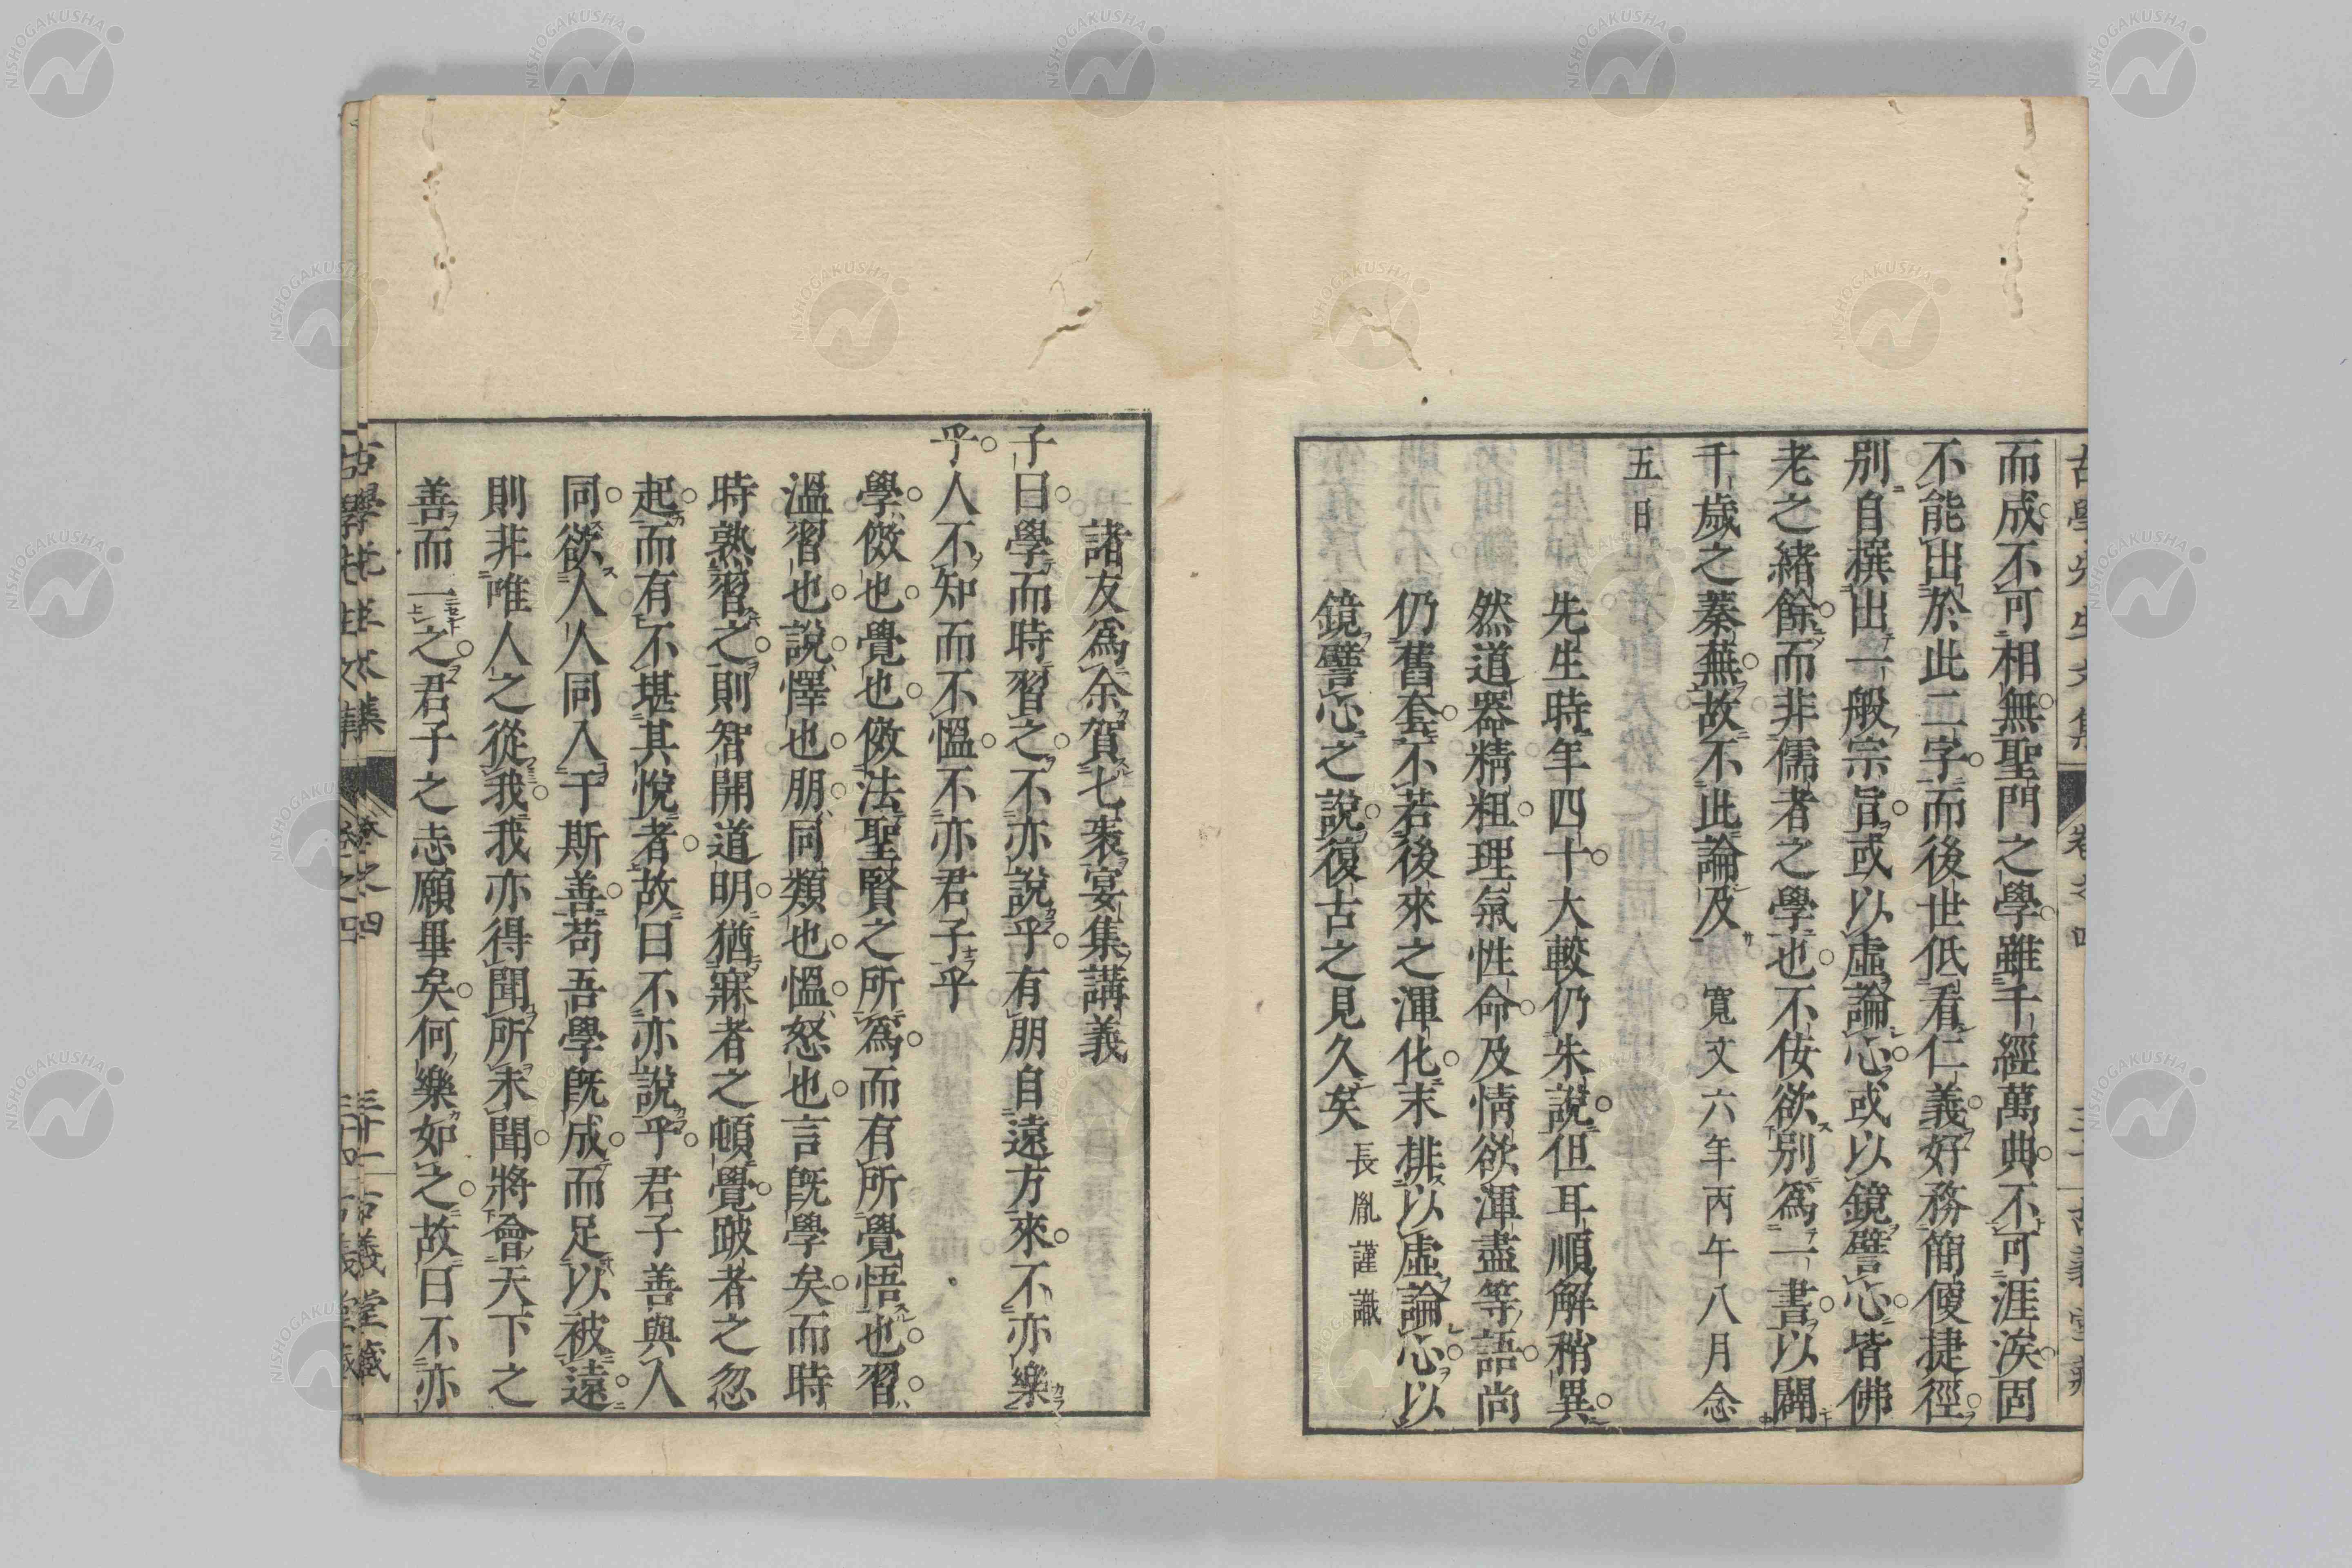 而成不可相無聖門之學雖千經萬典不可涯涘固
不能出於此二字而後世低看仁義好務簡便捷徑
別自撰出一般宗旨或以虛論心或以鏡譬心皆佛
老之緒餘而非儒者之學也不佞欲別爲一書以闢
千歲之蓁蕪故不此論及 寛文六年丙午八月念
五日
先生時年四十大較仍朱說但耳順解稍異
然道器精粗理氣性命及情欲渾盡等語尚
仍舊套不若後來之渾化末排以虛論心以
鏡譬心之說復古之見久矣 長胤謹識
諸友爲余賀七袠宴集講義
子曰學而時習之不亦說乎有朋自遠方來不亦樂
乎人不知而不慍不亦君子乎
學傚也覺也傚法聖賢之所爲而有所覺悟也習
溫習也說懌也朋同類也慍怒也言旣學矣而時
時熟習之則智開道明猶寐者之頓覺跛者之忽
起而有不堪其悅者故曰不亦說乎君子善與人
同欲人人同入于斯善苟吾學旣成而足以被遠
則非唯人之從我我亦得聞所未聞將會天下之
善而一之君子之志願畢矣何樂如之故曰不亦
古學先生文集 卷之四 三十一 古義堂藏
NISHOGAKUSHA